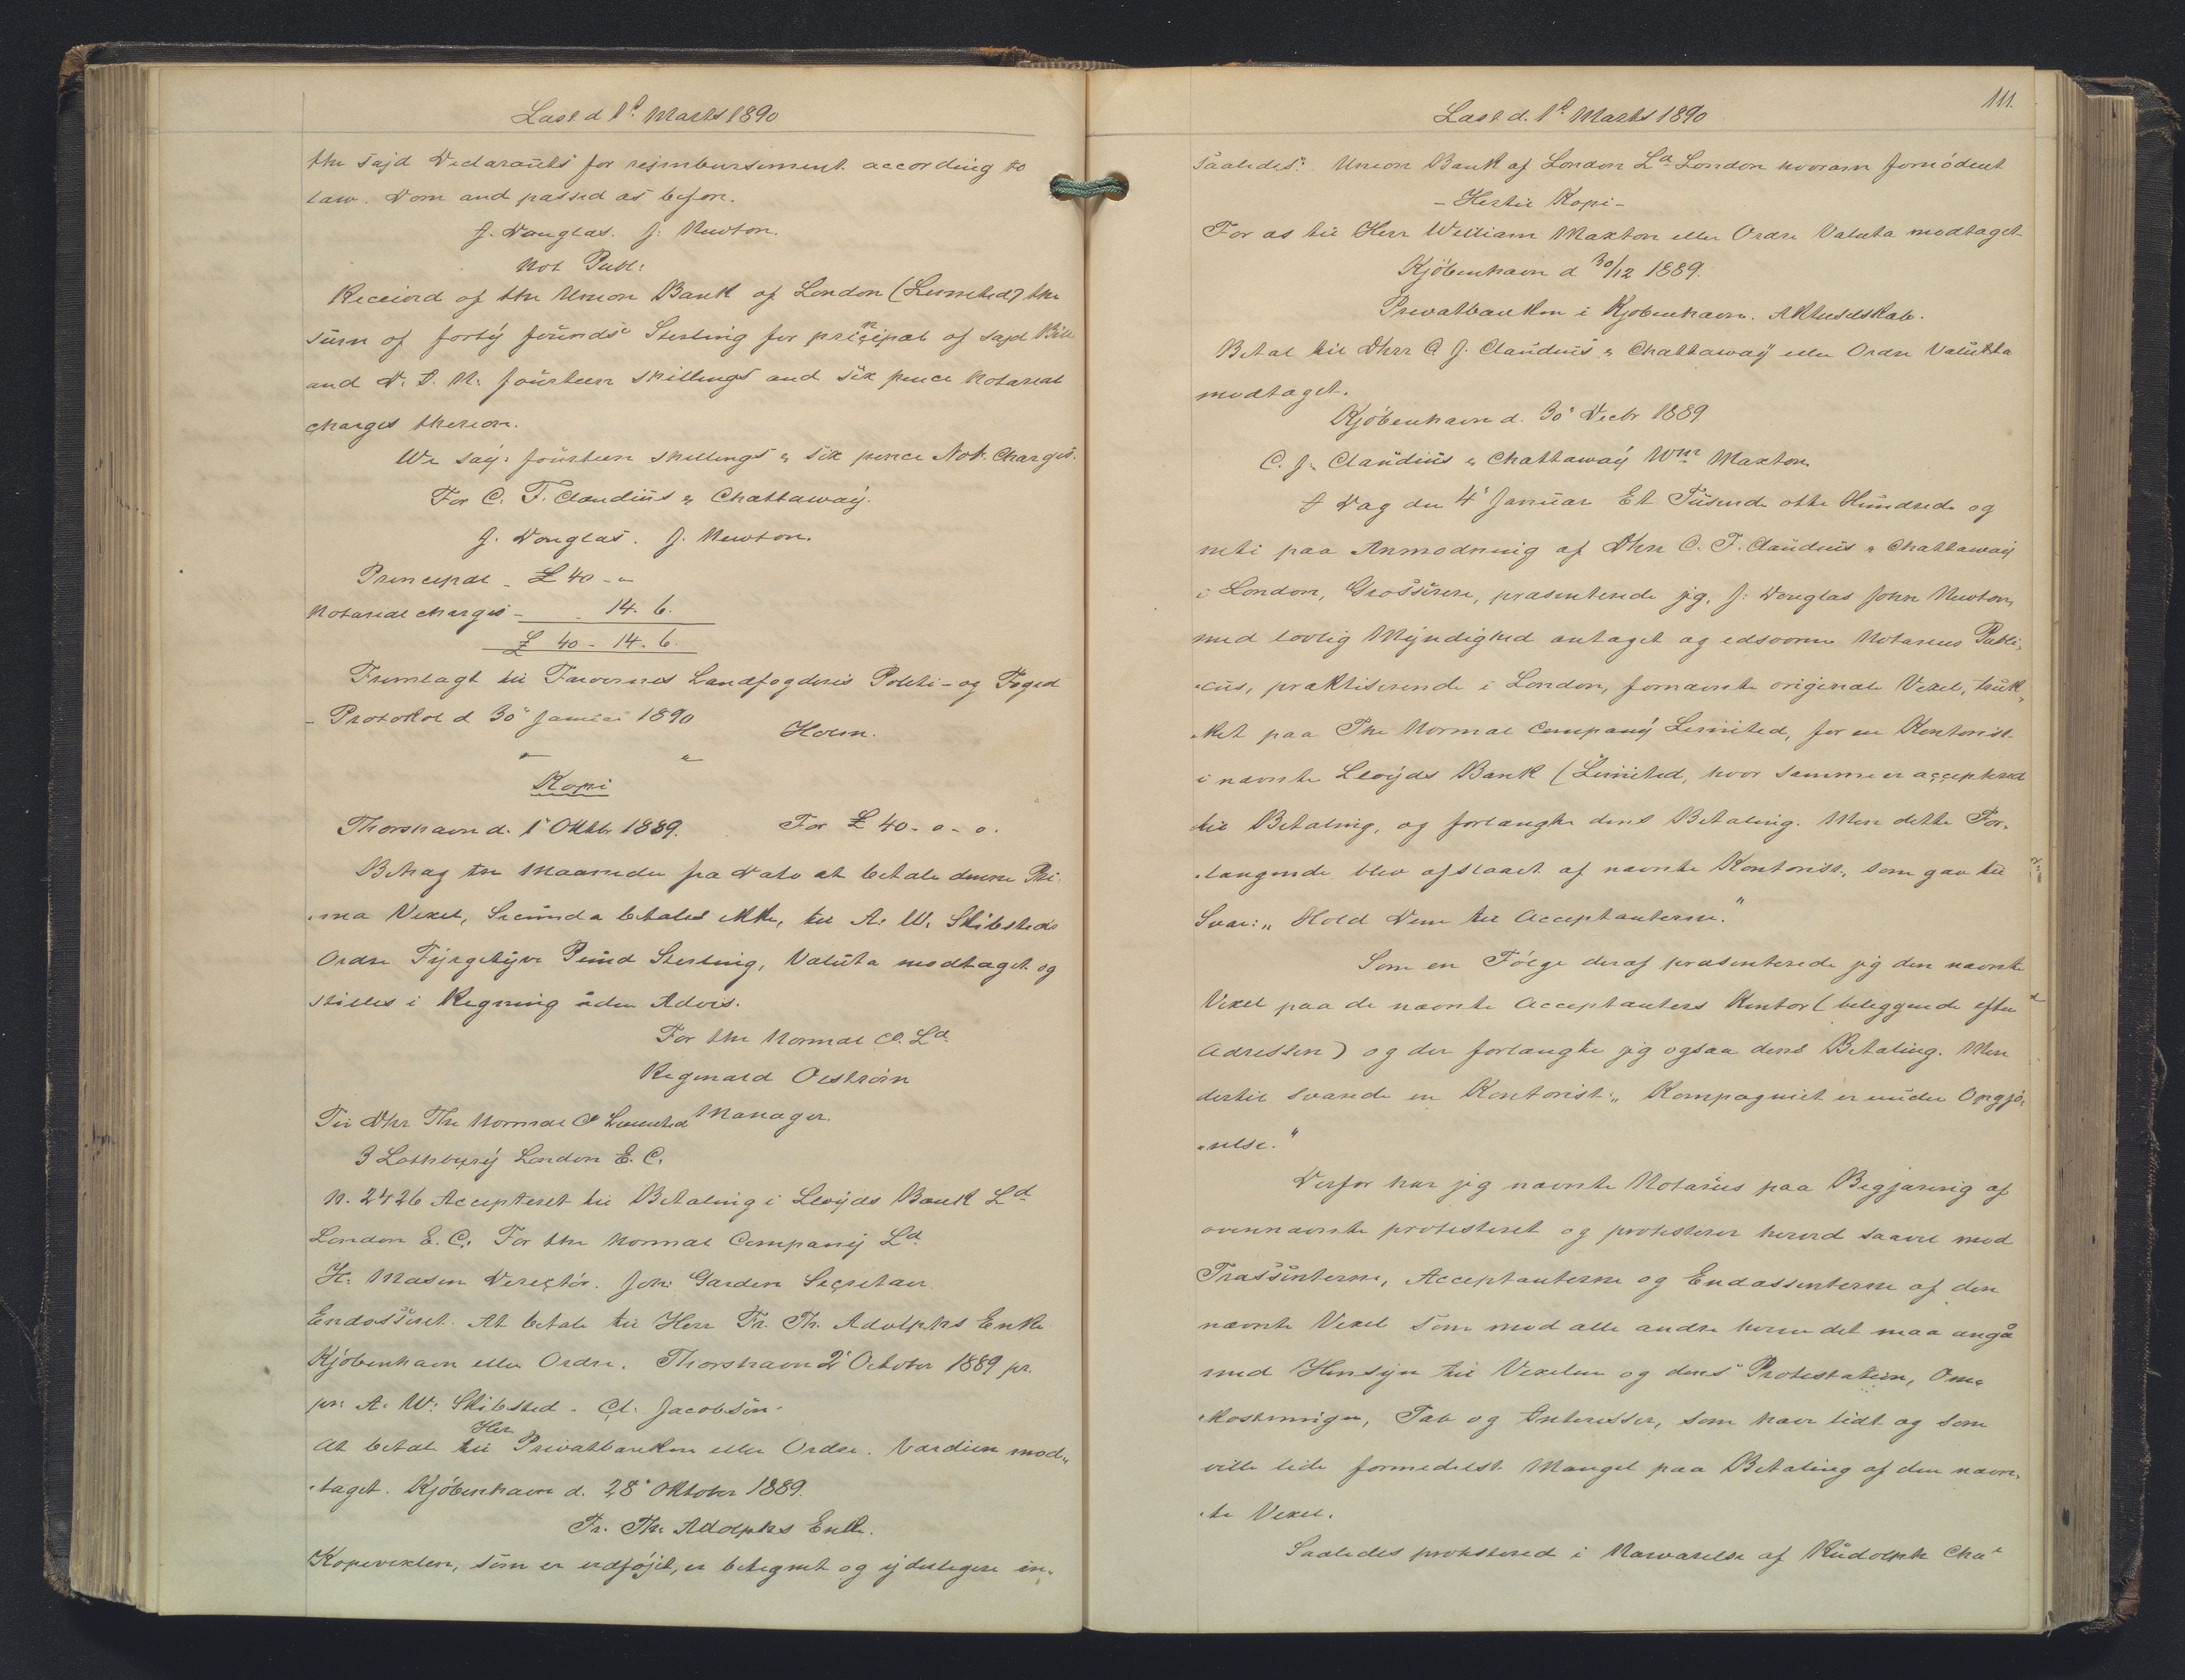 Læst d 1ᵉ Marts 1890
the sajd Declarants for rejmbursement according to
law. Dom and passed as before.
J. Douglas. J. Newton.
Not Publ:
Received of the Union Bank of London (Limited) the
sum of forty founds Sterling for principal of sajd Bill
and D. D. N. fourteen shillings and six pence Notarial
charges thereon.
We say: fourteen shillings & six pence Not. Charges.
For C. F. Claudius & Chattaway.
J. Douglas. J. Newton.
Principal - £ 40 - "
Notarial charges - 14. 6.
£ 40 - 14. 6.
Fremlagt til Færøernes Landfogderis Politi- og Foged
- Protokol d 30' Januar 1890
Holm.
" "
Kopi
Thorshavn d. 1' Oktbr 1889. For £ 40 - 0 - 0.
Betrag tre Maaneder fra Dato at betale denne Pri-
-ma Vexel, Secunda betales ikke, til A. W. Skibsteds
Ordre Fyrgetyve Pund Sterling, Valuta modtaget og
stilles i Regning uden Advis.
For the Normal Co. Ld.
Reginald Oestrøm
Manager.
Til Dhr The Normal Co Limited
3 Lothbury London E. C.
N. 2426 Accepteret til Betaling i Lloyds Bank Ld
London E. C. For the Normal Company Ld.
H. Mason Director. Joh: Garden Secretair.
Endosseret. At betale til Herr Fr. Th. Adolphs Enke
Kjøbenhavn eller Ordre. Thorshavn 2' October 1889 pr.
pr. A. W. Skibsted. Cl. Jacobsen.
At betale til Her Privatbanken eller Ordre. Værdien mod-
-taget. Kjøbenhavn d. 28' Oktober 1889.
Fr. Th. Adolphs Enke.
Kopivexlen, som er vedføjet, er betegnet og yderligere in-
111.
Læst d. 1ᵉ Marts 1890
saaledes: Union Bank of London Ld London hvoram fornødent
- Hertil Kopi -
For os til Herr William Maxton eller Ordre Valuta modtaget
Kjøbenhavn d 30/12 1889.
Privatbanken i Kjøbenhavn. Aktieselskab.
Betal til Dhrr C. J. Claudius & Chattaway eller Ordre Valutta
modtaget.
Kjøbenhavn d. 30' Decbr 1889
C. J. Claudius & Chattaway Wm Maxton.
I Dag den 4' Januar Et Tusende otte Hundrede og
neti paa Anmodning af Dhrr C. F. Claudius & Chattaway
i London, Grosserere, præsenterede jeg, J. Douglas John Newton,
med lovlig Myndighed antaget og edsvoren Notarius Publi-
-cus, praktiserende i London, fornævnte originale Vexel, truk-
-ket paa The Normal Company Limited, for en Kontorist
i nævnte Lloyds Bank (Limited, hvor samme er accepteret
til Betaling, og forlangte dens Betaling. Men dette For-
-langende blev afslaaet af nævnte Kontorist, som gav til
Svar: "Hold Dem til Acceptanterne."
Som en Følge deraf præsenterede jeg den nævnte
Vexel paa de nævnte Acceptanters Kontor (beliggende efter
Adressen) og der forlangte jeg ogsaa dens Betaling. Men
dertil svarede en Kontorist: "Kompagniet er under Opgjø-
-relse."
Derfor har jeg nævnte Notarius paa Begjæring af
ovennævnte protesteret og protesterer herved saavel mod
Trassenterne, Acceptanterne og Endossenterne af den
nævnte Vexel som mod alle andre hvem det maa angå
med Hensyn til Vexelen og dens Protestation, Om-
-kostninger, Tab og Interesser, som have lidt og som
ville lide formedelst Mangel paa Betaling af den nævn-
-te Vexel.
Saaledes protesteret i Nærværelse af Rudolph Cha-